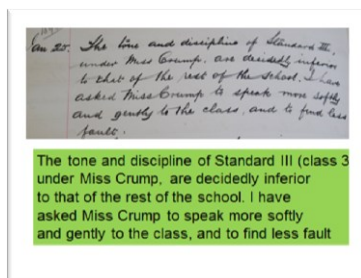 Jan 25. The tone and discipline of Standard III,
under Miss Crump, are decidedly inferior
to that of the rest of the School. I have
asked Miss Crump to speak more softly
and gently to the class, and to find less
fault.
The tone and discipline of Standard III (class 3
under Miss Crump, are decidedly inferior
to that of the rest of the school. I have
asked Miss Crump to speak more softly
and gently to the class, and to find less fault